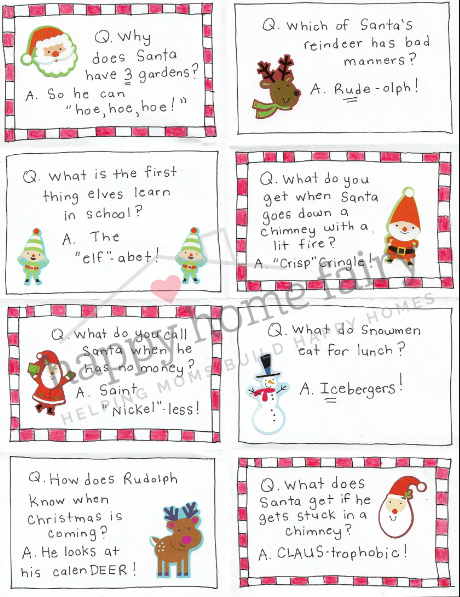 Q. Why
does Santa
have 3 gardens?
A. So he can
"hoe, hoe, hoe!"
Q. Which of Santa's
reindeer has bad
manners?
A. Rude-olph!
Q. What is the first
thing elves learn
in school?
A. The
"elf"-abet!
Q. What do you
get when Santa
goes down a
chimney with a
lit fire?
A. "Crisp" Cringle!
Q. What do you call
Santa when he
has no money?
A. Saint
"Nickel"-less!
Q. What do snowmen
eat for lunch?
A. Icebergers!
Q. How does Rudolph
know when
Christmas is
coming?
A. He looks at
his calenDEER!
Q. What does
Santa get if he
gets stuck in a
chimney?
A. CLAUS-trophobic!
happy home fairy
HELPING MOMS BUILD HAPPY HOMES